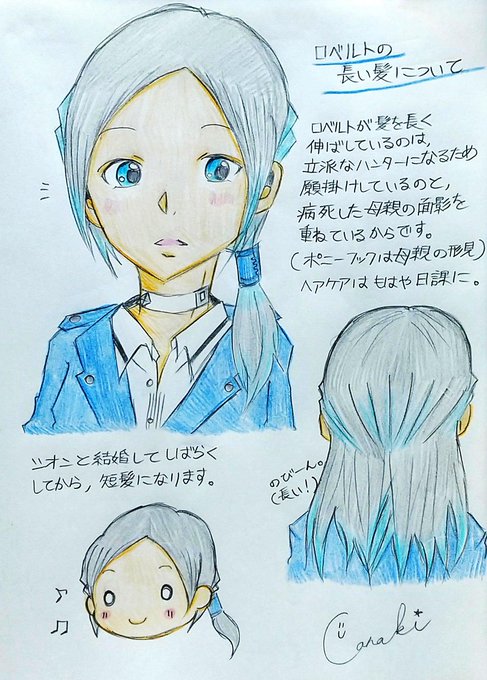 ロベルトの
長い髪について
ロベルトが髪を長く
伸ばしているのは、
立派なハンターになるため
願掛けしているのと、
病死した母親の面影を
重ねているからです。
(ポニーフックは母親の形見)
ヘアケアはもはや日課に。
シオンと結婚してしばらく
してから、短髪になります。
のびーん。
(長い!)
Canaki